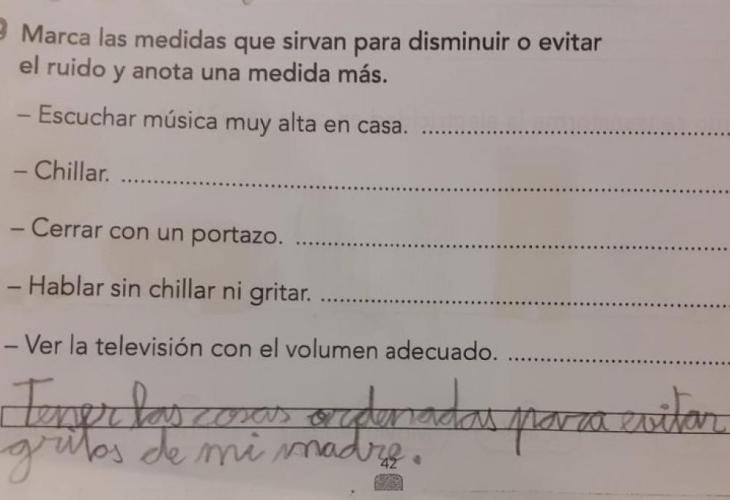 Marca las medidas que sirvan para disminuir o evitar
el ruido y anota una medida más.
– Escuchar música muy alta en casa. ........................................
– Chillar. ................................................................................
– Cerrar con un portazo. ........................................................
– Hablar sin chillar ni gritar. ....................................................
– Ver la televisión con el volumen adecuado. ............................
Tener las cosas ordenadas para evitar
gritos de mi madre.
42